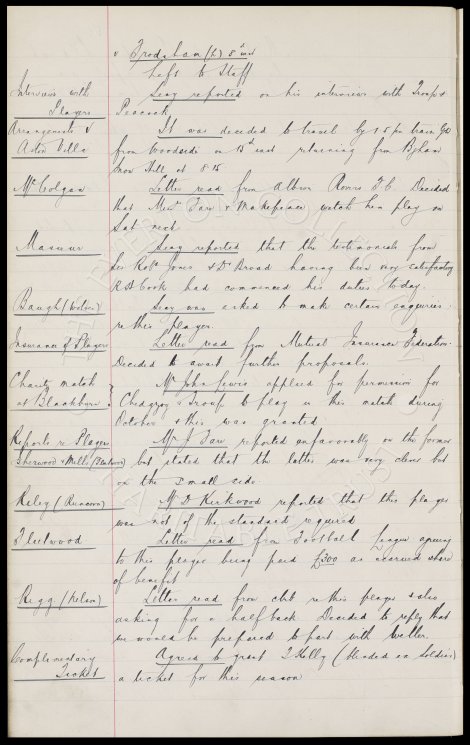 v Frodsham (h) 8th inst
Left to Staff
Interviews with Players
Secy reported on his interviews with Troup &
Peacock
Arrangements v Aston Villa
It was decided to travel by 1.5 pm train GW
from Woodside on 15th inst returning from B'ham
Snow Hill at 8.15
McColgan
Letter read from Albion Rovers F.C. Decided
that Messrs Fare & Makepeace watch him play on
Sat next
Masseur
Secy reported that the testimonials from
Sir Robt Jones & Dr Broad having been very satisfactory
R H Cook had commenced his duties today.
Baugh (Wolves)
Secy was asked to make certain enquiries
re this player.
Insurance of Players
Letter read from Mutual Insurance Federation.
Decided to await further proposals.
Charity match at Blackburn
Mr John Lewis applied for permission for
Chedgzoy & Troup to play in this match during
October & this was granted.
Reports re Players
Mr J. Fare reported unfavorably on the former
Sherwood & Mills
but stated that the latter was very clever but
on the small side.
Riley (Runcorn)
Mr D Kirkwood reported that this player
was not of the standard required
Fleetwood
Letter read from Football League agreeing
to this player being paid £300 as accrued share
of benefit
Rigg (Nelson)
Letter read from club re this player & also
asking for a half back. Decided to reply that
we would be prepared to part with Weller.
Complimentary Ticket
Agreed to grant T Kelly (blinded ex Soldier)
a ticket for this season